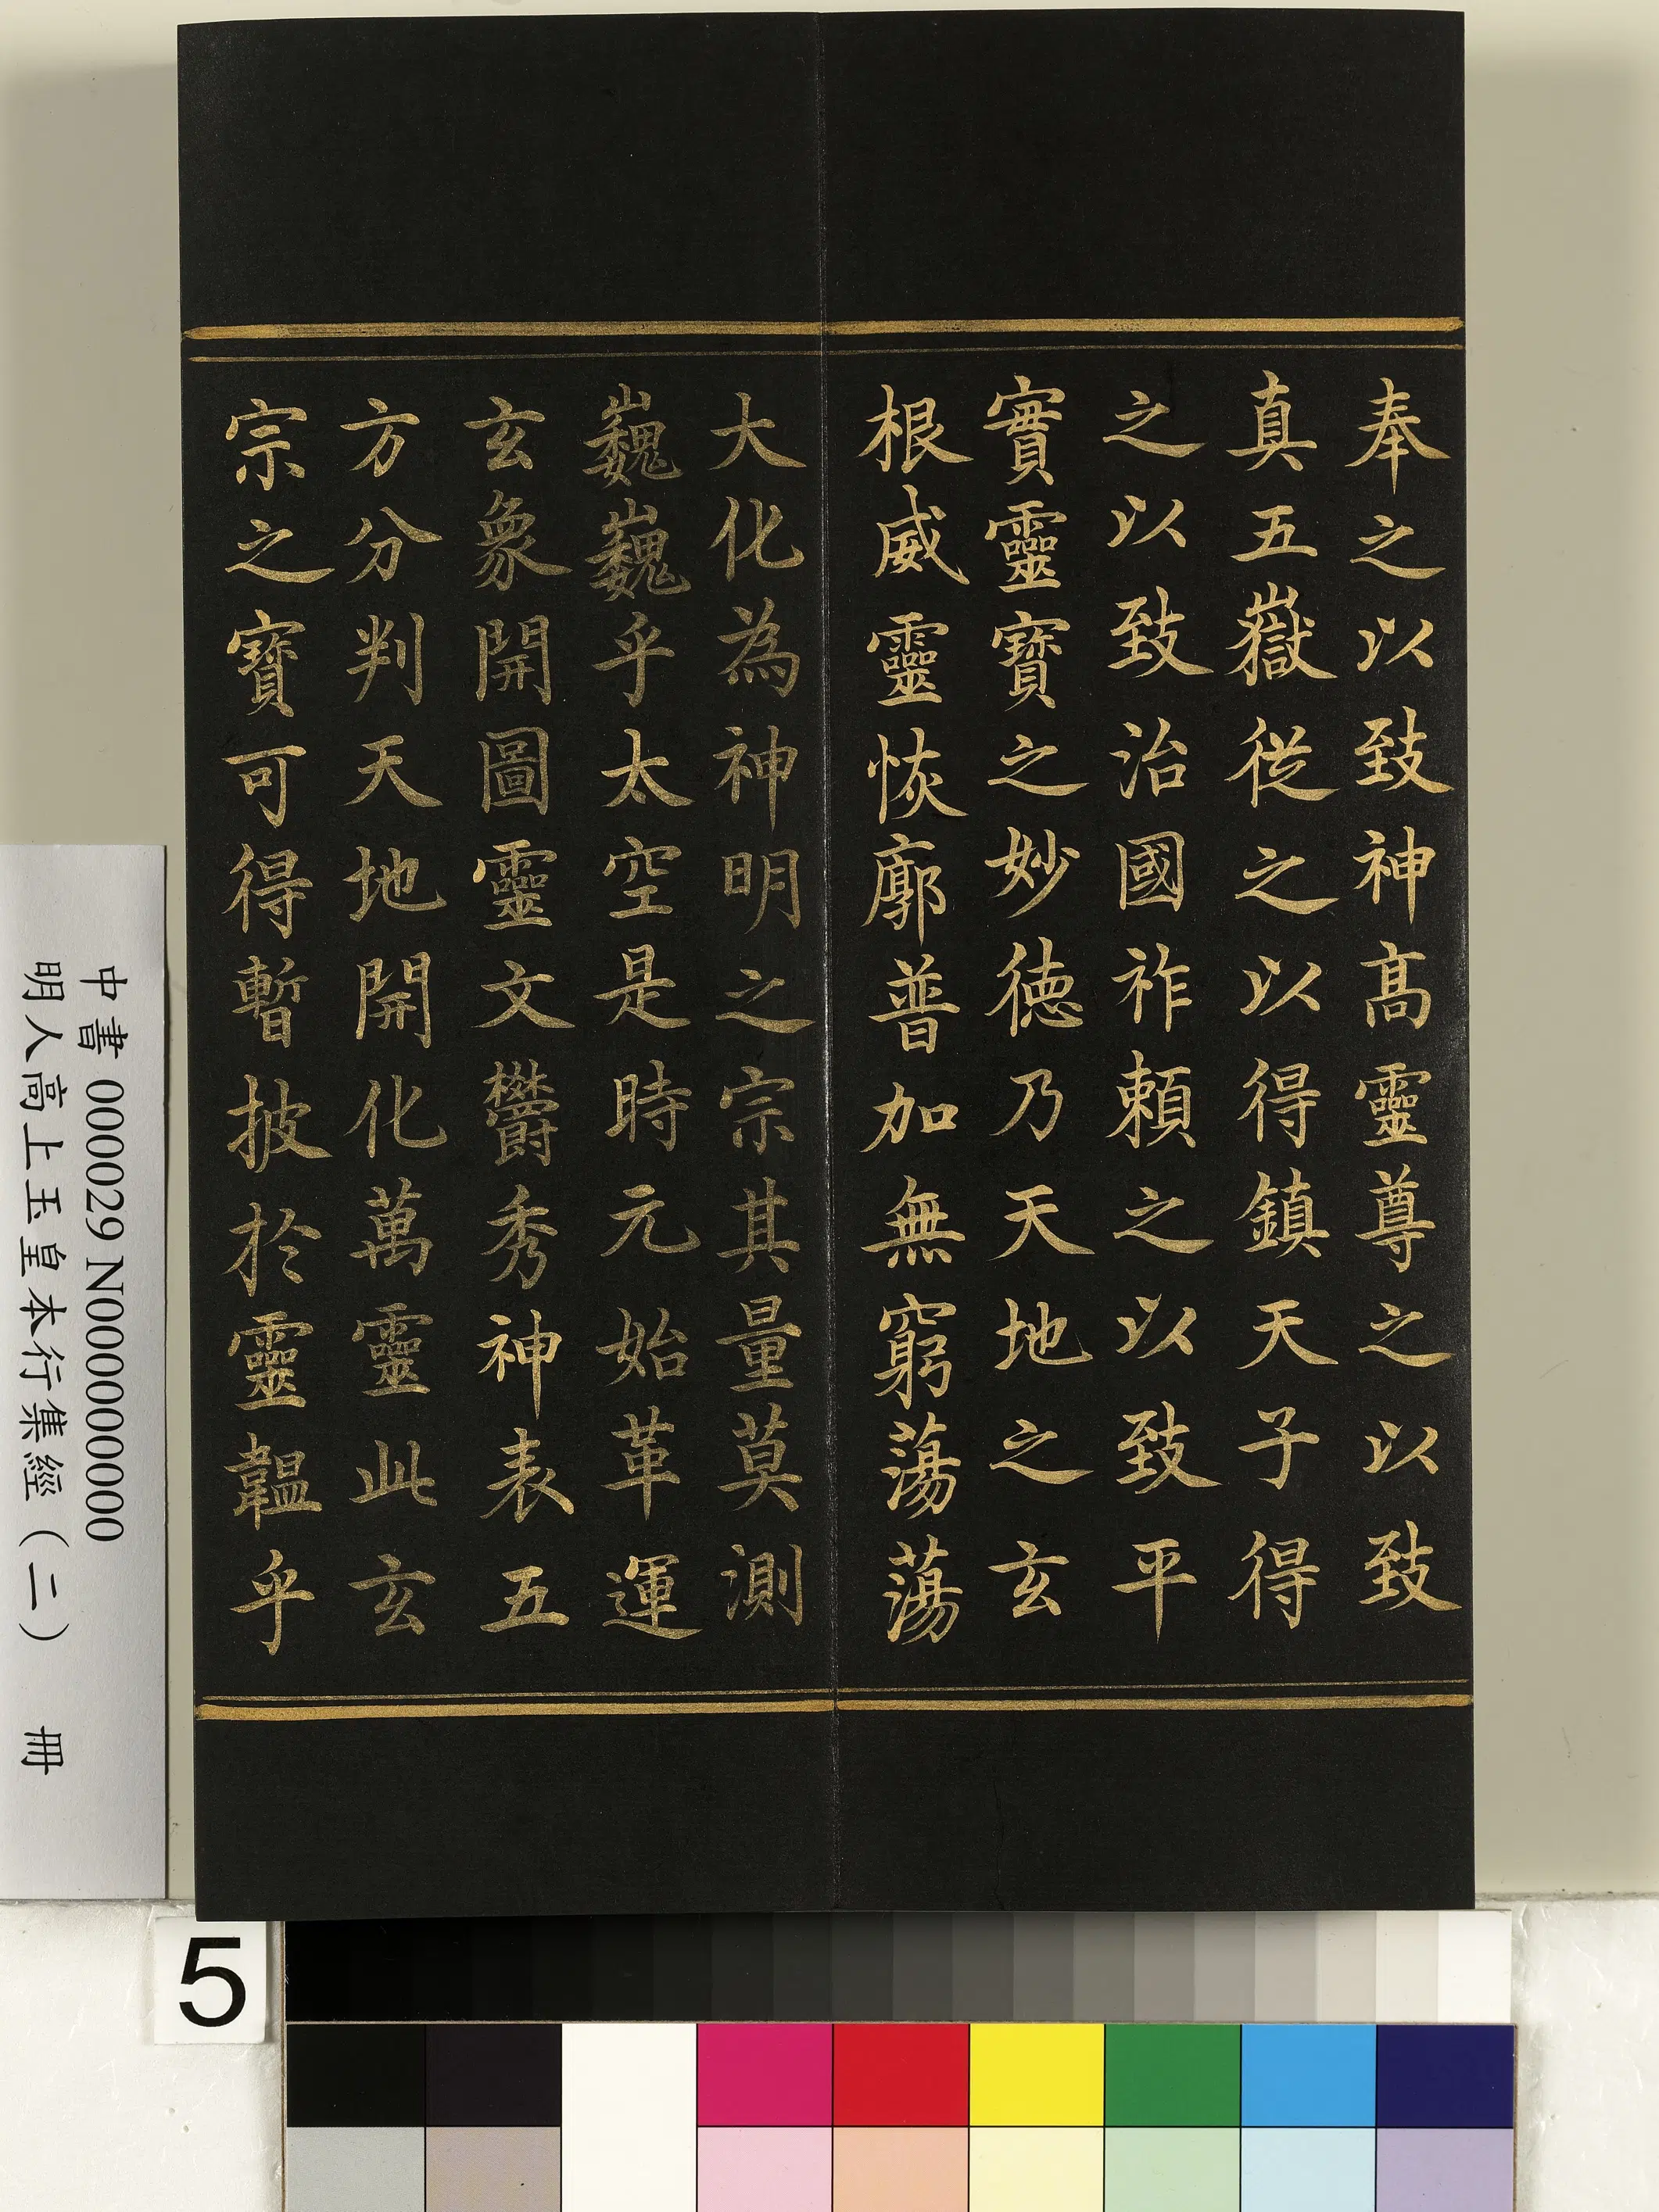 奉之以致神高靈尊之以致
真五嶽從之以得鎮天子得
之以致治國祚賴之以致平
實靈寶之妙德乃天地之玄
根威靈恢廓普加無窮蕩蕩
大化為神明之宗其量莫測
巍巍乎太空是時元始革運
玄象開圖靈文欝秀神表五
方分判天地開化萬靈此玄
宗之寶可得暫披於靈韞乎
中書 000029 N000000000
明人高上玉皇本行集經（二） 冊
5